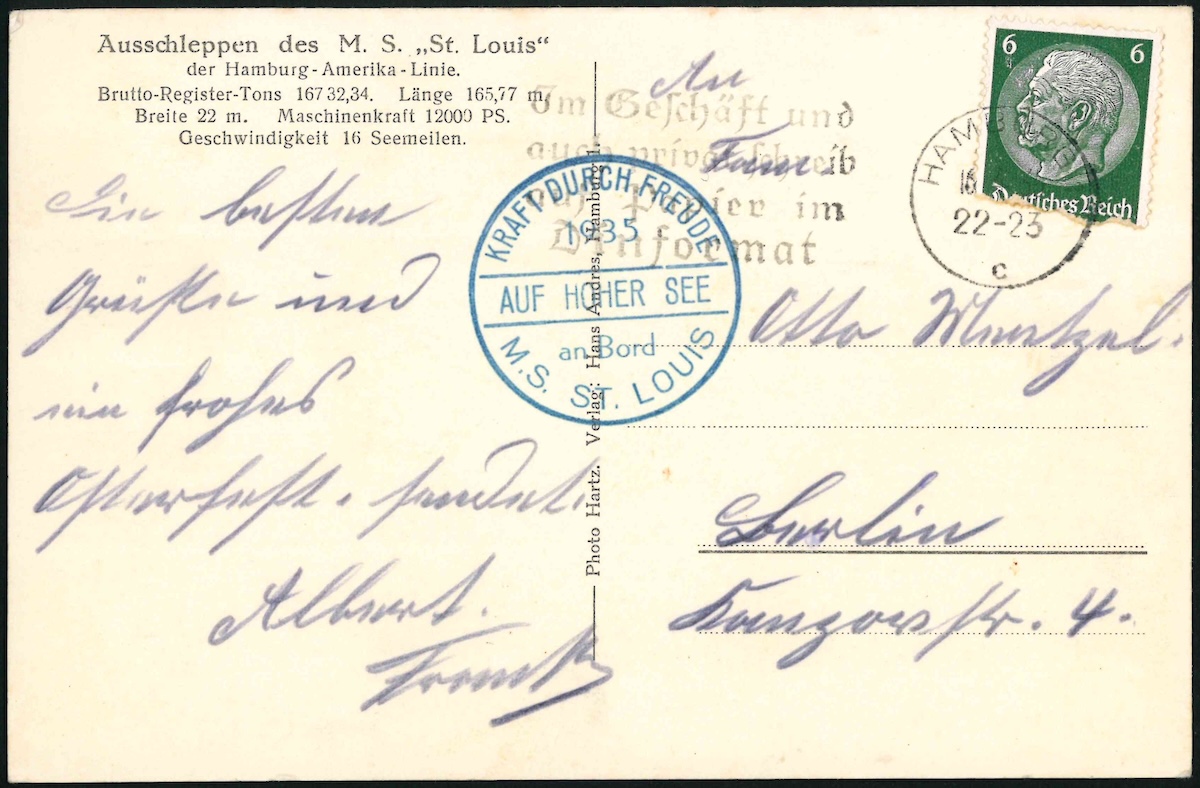 Ausschleppen des M. S. „St. Louis“
der Hamburg-Amerika-Linie.
Brutto-Register-Tons 16732,34. Länge 165,77 m,
Breite 22 m. Maschinenkraft 12000 PS.
Geschwindigkeit 16 Seemeilen.
Die besten
Grüße und
ein frohes
Osterfest. sendet.
Albert.
Photo Hartz. Verlag: Hans Andres, Hamburg 1.
KRAFT DURCH FREUDE
1935
AUF HOHER SEE
an Bord
M.S. ST. LOUIS
Im Geschäft und
auch privat schreib
auf Papier im
Dinformat
HAMBURG
22-23
c
6 6
Deutsches Reich
An
Fam.
Otto
Berlin
str. 4.